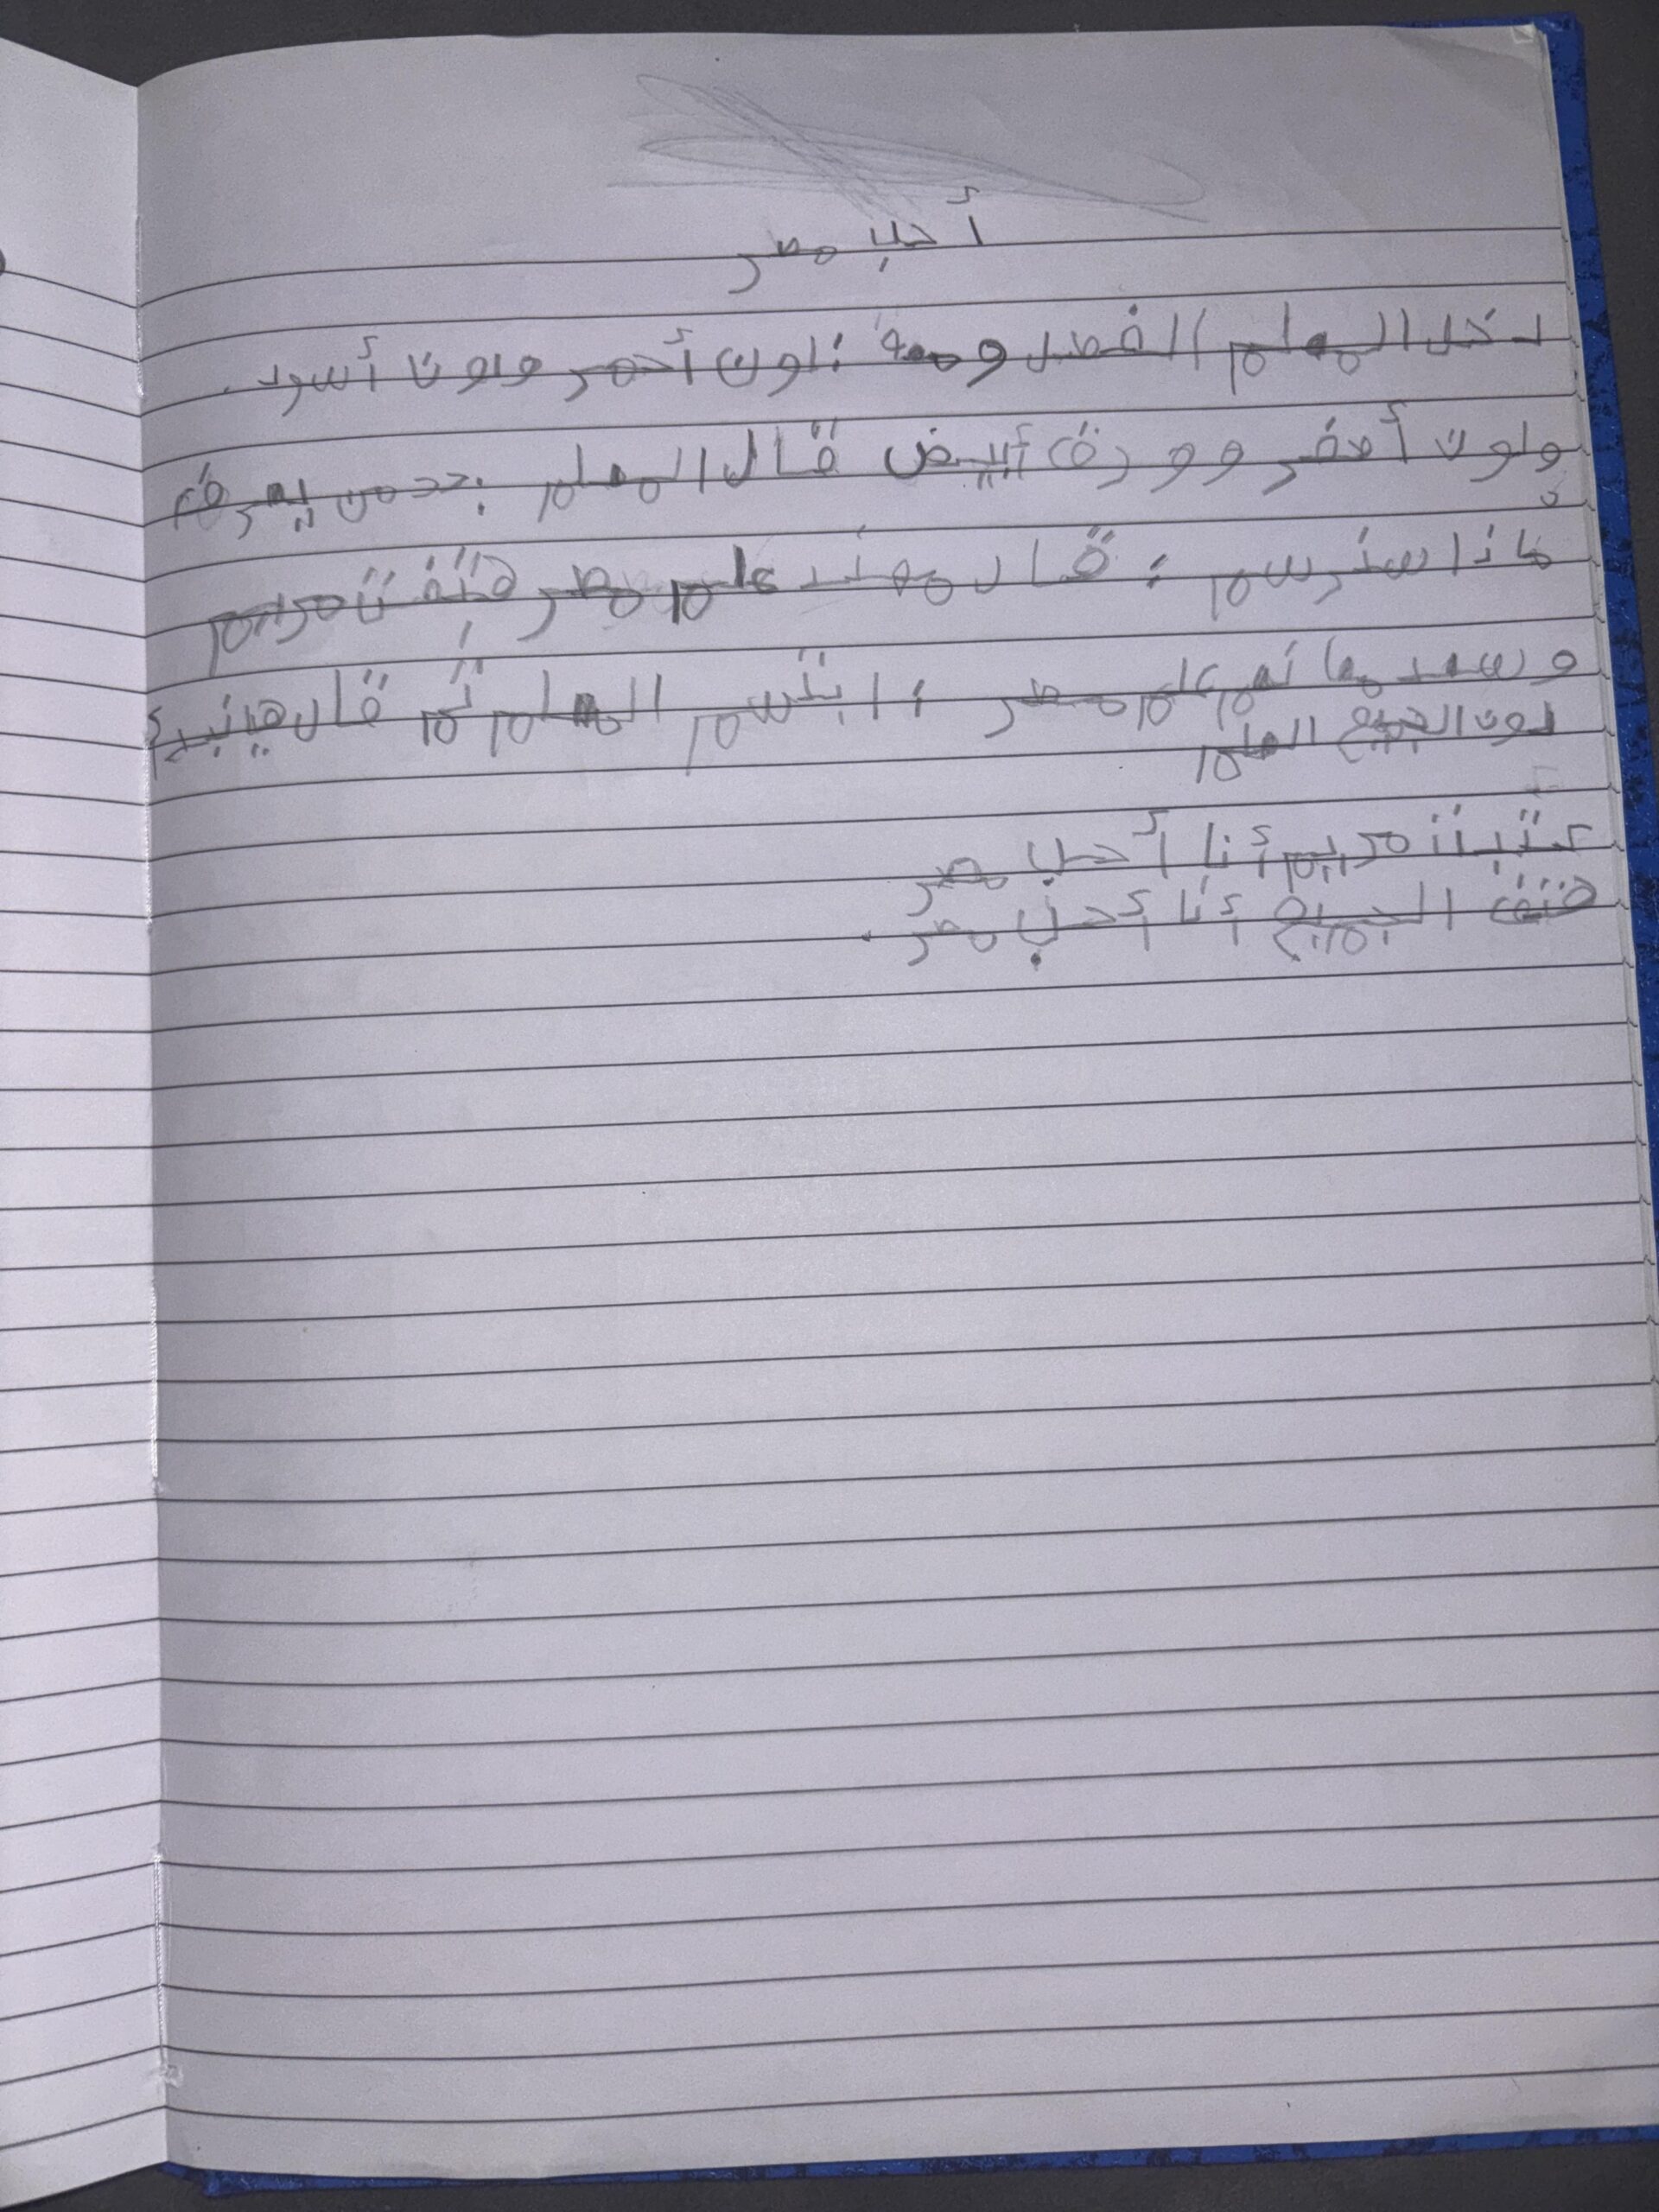 أحب مصر
دخل المعلم الفصل ومعه : لون أحمر ولون أسود .
ولون أصفر وورقة أبيض قال المعلم : من يعرف
ماذا سنرسم : قال مهند علم مصر هتفت مريم
وسعد نعم علم مصر : ابتسم المعلم ثم قال هيا نبدأ
لون الجميع العلم
كتبت مريم أنا أحب مصر
هتف الجميع أنا أحب مصر .